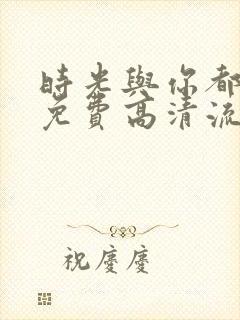 時光與你都
免費高清流
祝慶慶